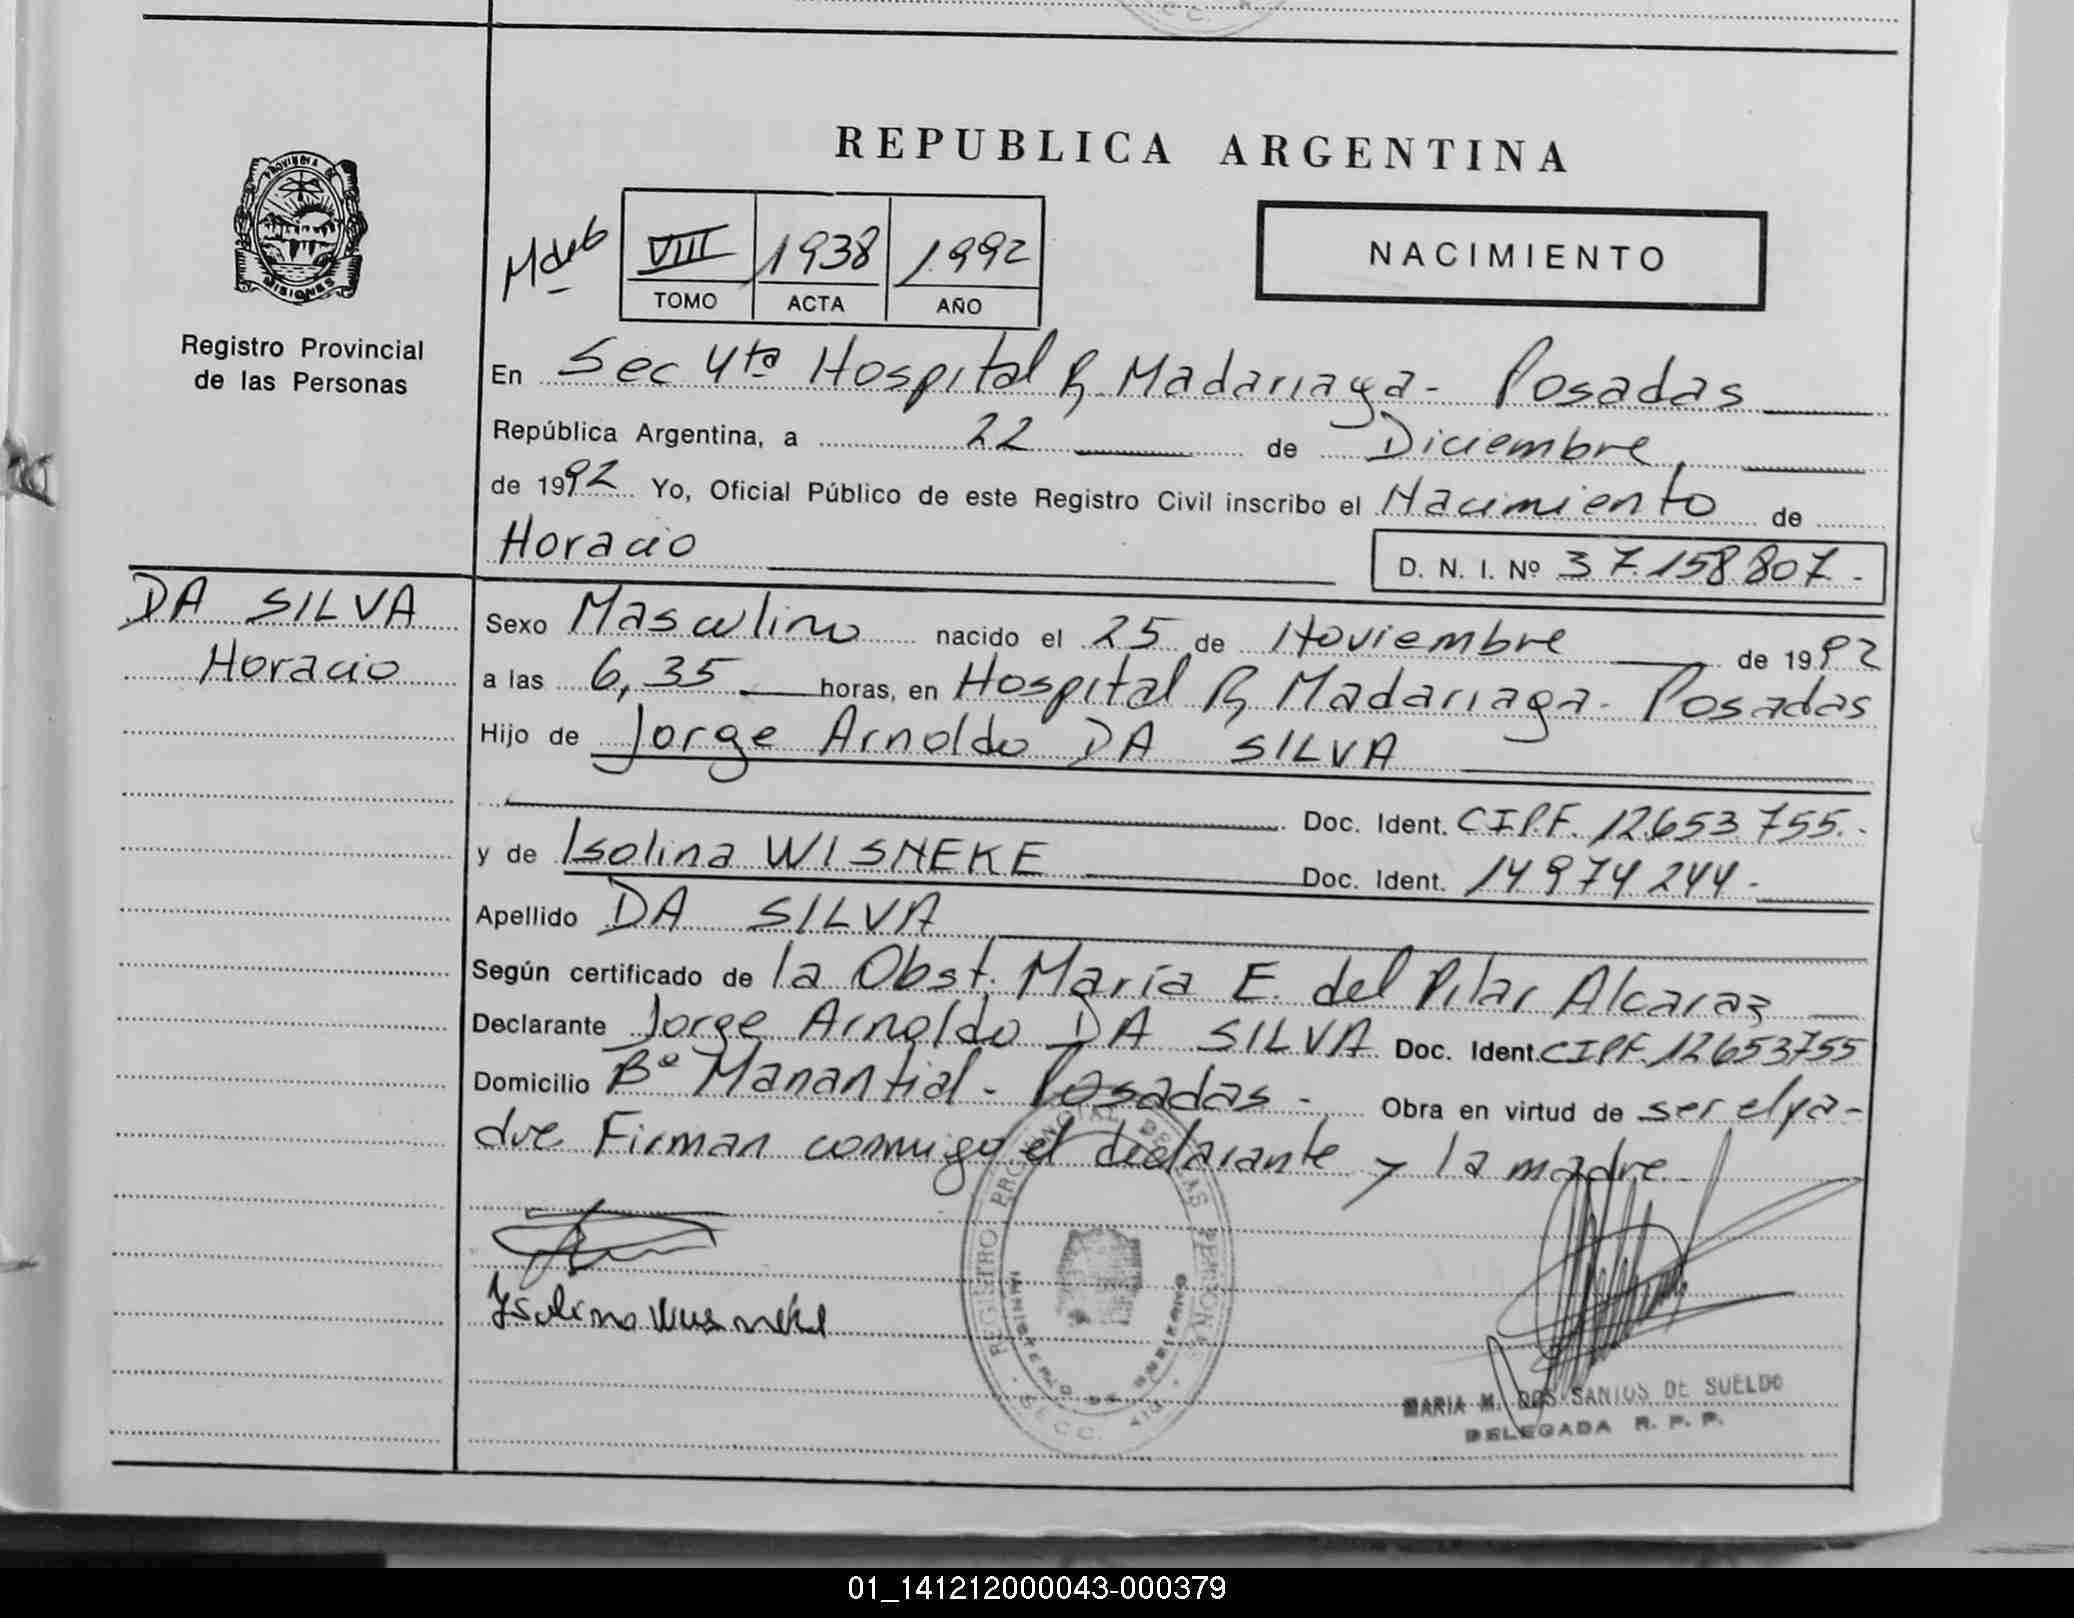 REPUBLICA ARGENTINA
PROVINCIA DE
MISIONES
Registro Provincial
de las Personas
VIII 1938 1992
TOMO ACTA AÑO
NACIMIENTO
En Sec 4ta Hospital R. Madariaga - Posadas
República Argentina, a 22 de Diciembre
de 1992 Yo, Oficial Público de este Registro Civil inscribo el Nacimiento de
Horacio D. N. I. Nº 37.158.807.-
DA SILVA
Horacio
Sexo Masculino nacido el 25 de Noviembre de 1992
a las 6,35 horas, en Hospital R. Madariaga - Posadas
Hijo de Jorge Arnoldo DA SILVA
Doc. Ident. CI.P.F. 12.653.755.-
y de Isolina WISNEKE Doc. Ident. 14.974.244.-
Apellido DA SILVA
Según certificado de la Obst. María E. del Pilar Alcaraz
Declarante Jorge Arnoldo DA SILVA Doc. Ident. CIPF. 12.653.755
Domicilio Bº Manantial - Posadas - Obra en virtud de ser el pa-
dre. Firman conmigo el declarante y la madre.
Isolina Wisneke
REGISTRO PROVINCIAL DE LAS PERSONAS
MINISTERIO DE GOBIERNO
SECC. 4ta
MARIA M. DOS SANTOS DE SUELDO
DELEGADA R. P. P.
01_141212000043-000379